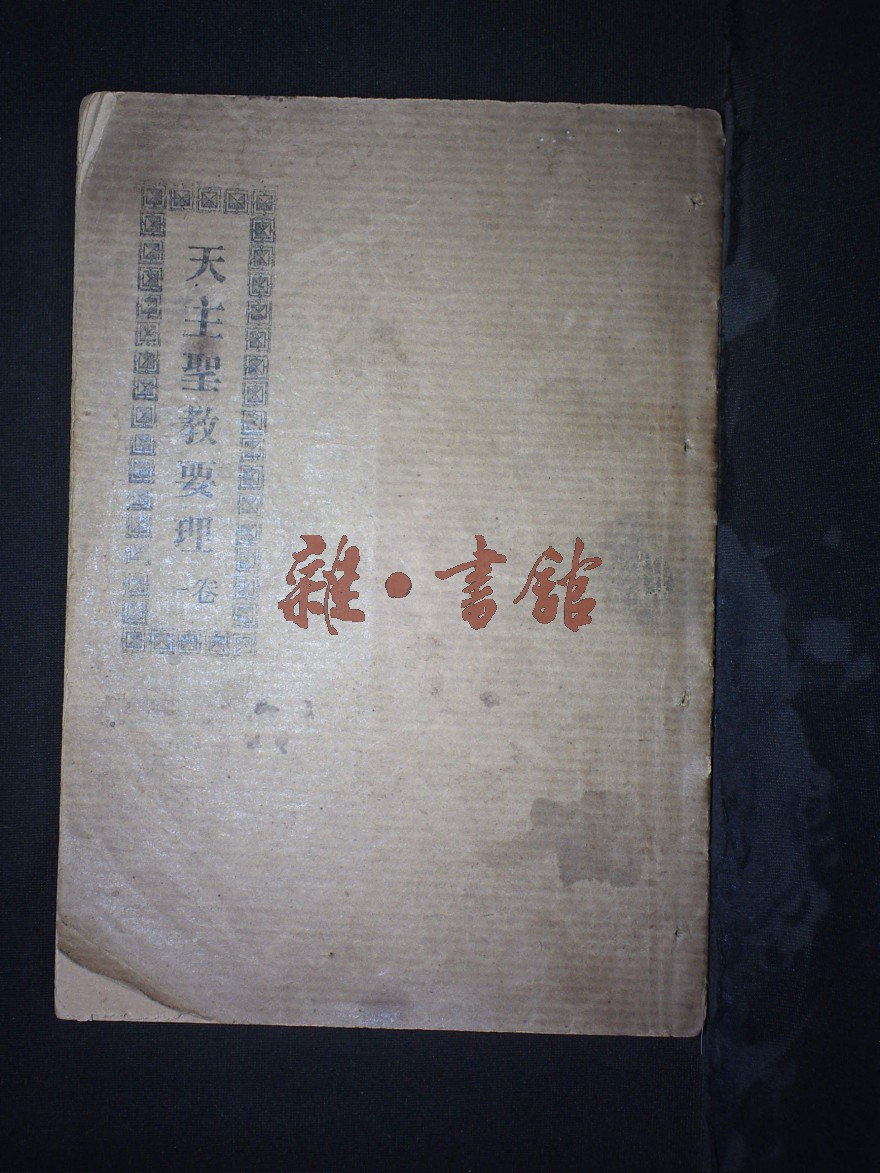 天主聖教要理 卷一
雜·書館